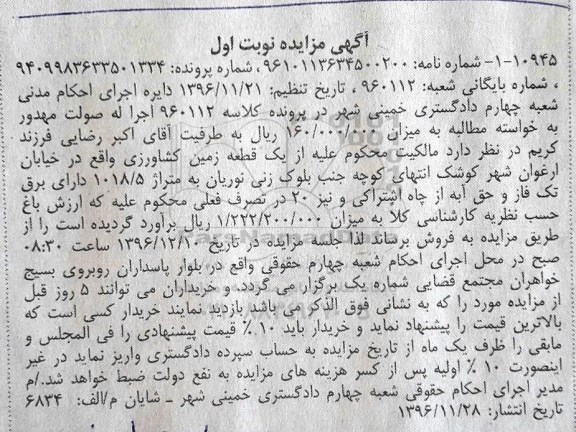 آگهی مزایده نوبت اول
۱-۱۰۹۴۵- شماره نامه: ۹۶۱۰۱۱۳۶۳۴۵۰۰۲۰۰، شماره پرونده: ۹۴۰۹۹۸۳۶۳۳۵۰۱۳۳۴
، شماره بایگانی شعبه: ۹۶۰۱۱۲ ، تاریخ تنظیم: ۱۳۹۶/۱۱/۲۱ دایره اجرای احکام مدنی
شعبه چهارم دادگستری خمینی شهر در پرونده کلاسه ۹۶۰۱۱۲ اجرا له صولت مهدور
به خواسته مطالبه به میزان ۱۶۰/۰۰۰/۰۰۰ ریال به طرفیت آقای اکبر رضایی فرزند
کریم در نظر دارد مالکیت محکوم علیه از یک قطعه زمین کشاورزی واقع در خیابان
ارغوان شهر کوشک انتهای کوچه جنب بلوک زنی نوریان به متراژ ۱۰۱۸/۵ دارای برق
تک فاز و حق آبه از چاه اشتراکی و نیز ۲۰ در تصرف فعلی محکوم علیه که ارزش باغ
حسب نظریه کارشناسی کلا به میزان ۱/۲۲۲/۲۰۰/۰۰۰ ریال برآورد گردیده است را از
طریق مزایده به فروش برساند لذا جلسه مزایده در تاریخ ۱۳۹۶/۱۲/۱۰ ساعت ۰۸:۳۰
صبح در محل اجرای احکام شعبه چهارم حقوقی واقع در بلوار پاسداران روبروی بسیج
خواهران مجتمع قضایی شماره یک برگزار می گردد. و خریداران می توانند ۵ روز قبل
از مزایده مورد را که به نشانی فوق الذکر می باشد بازدید نمایند خریدار کسی است که
بالاترین قیمت را پیشنهاد نماید و خریدار باید ۱۰ ٪ قیمت پیشنهادی را فی المجلس و
مابقی را ظرف یک ماه از تاریخ مزایده به حساب سپرده دادگستری واریز نماید در غیر
اینصورت ۱۰ ٪ اولیه پس از کسر هزینه های مزایده به نفع دولت ضبط خواهد شد./م
مدیر اجرای احکام حقوقی شعبه چهارم دادگستری خمینی شهر ـ شایان م/الف: ۶۸۳۴
تاریخ انتشار: ۱۳۹۶/۱۱/۲۸